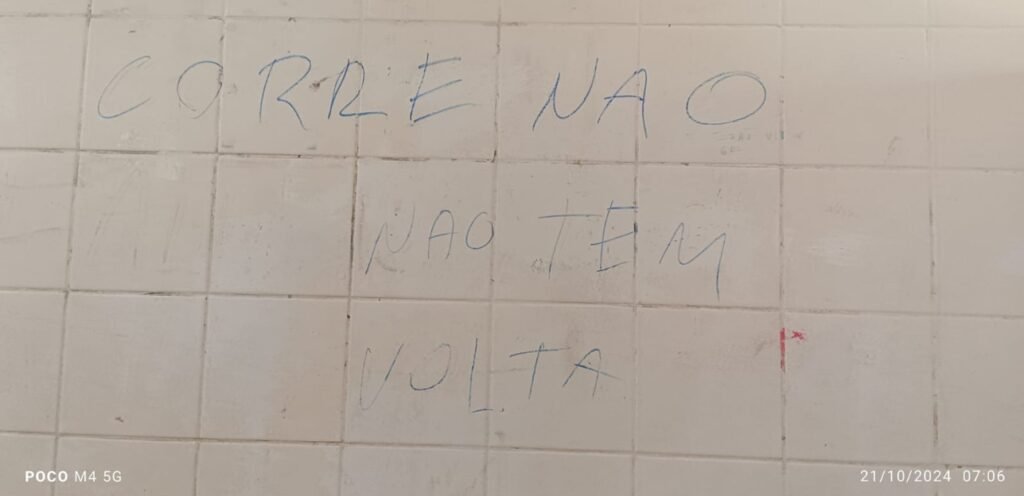 CORRE NAO
NAO TEM
VOLTA
POCO M4 5G
21/10/2024 07:06